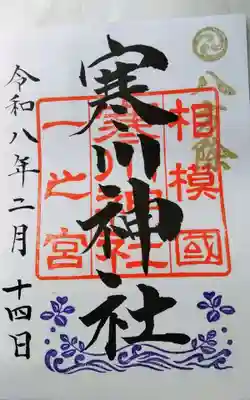 八方除
寒川神社
相模國
寒川神社
一之宮
令和八年二月十四日